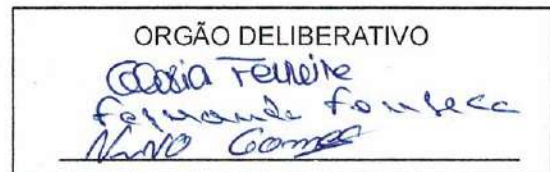 ORGÃO DELIBERATIVO
Ferreira
Fernando Fonseca
Nuno Gomes